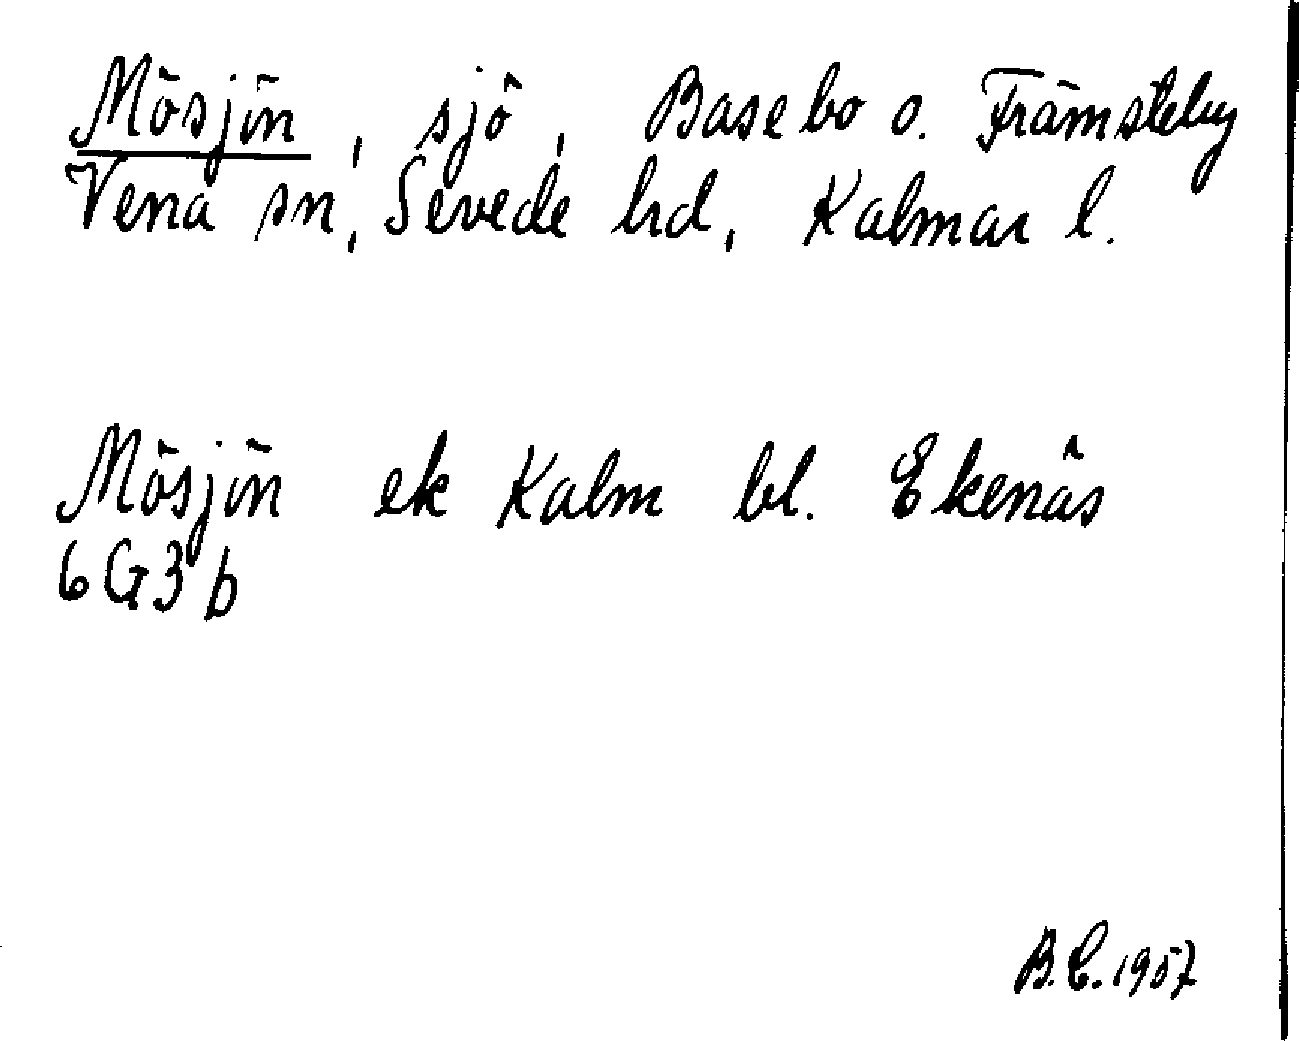 Mösjön, sjö, Basebo o. Främsteby
Vena sn, Sevede hd, Kalmar l.
Mösjön ek Kalm bl. Ekenäs
6G3b
B.E. 1957